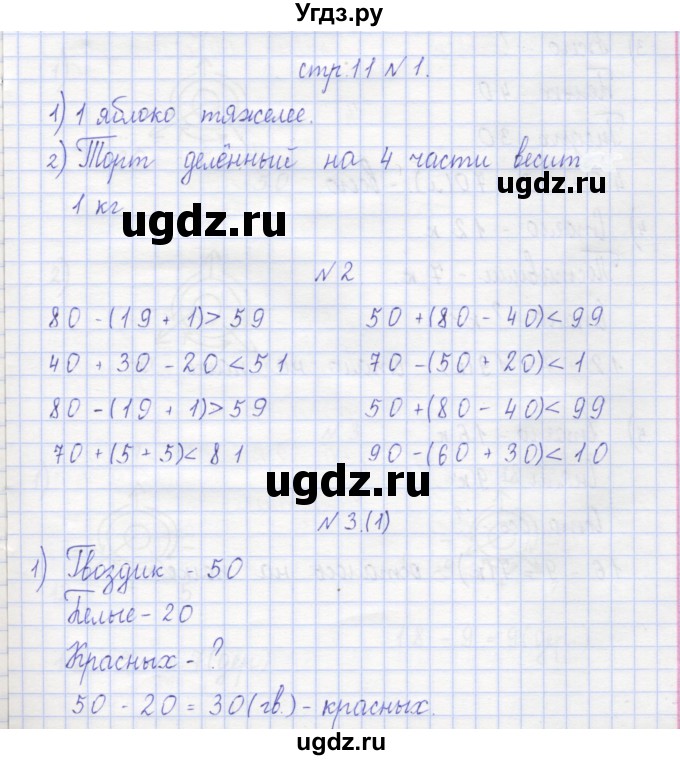 Угдз.ру
стр.11 №1.
1) 1 яблоко тяжелее.
2) Торт делённый на 4 части весит
1 кг
ugdz.ru
ugdz.ru
№2
80 - (19 + 1) > 59 50 + (80 - 40) < 99
40 + 30 - 20 < 51 70 - (50 + 20) < 1
80 - (19 + 1) > 59 50 + (80 - 40) < 99
70 + (5 + 5) < 81 90 - (60 + 30) < 10
ugdz.ru
№3.(1)
1) Гвоздик - 50
Белые - 20
Красных - ?
50 - 20 = 30 (гв.) - красных.
ugdz.ru
ugdz.ru